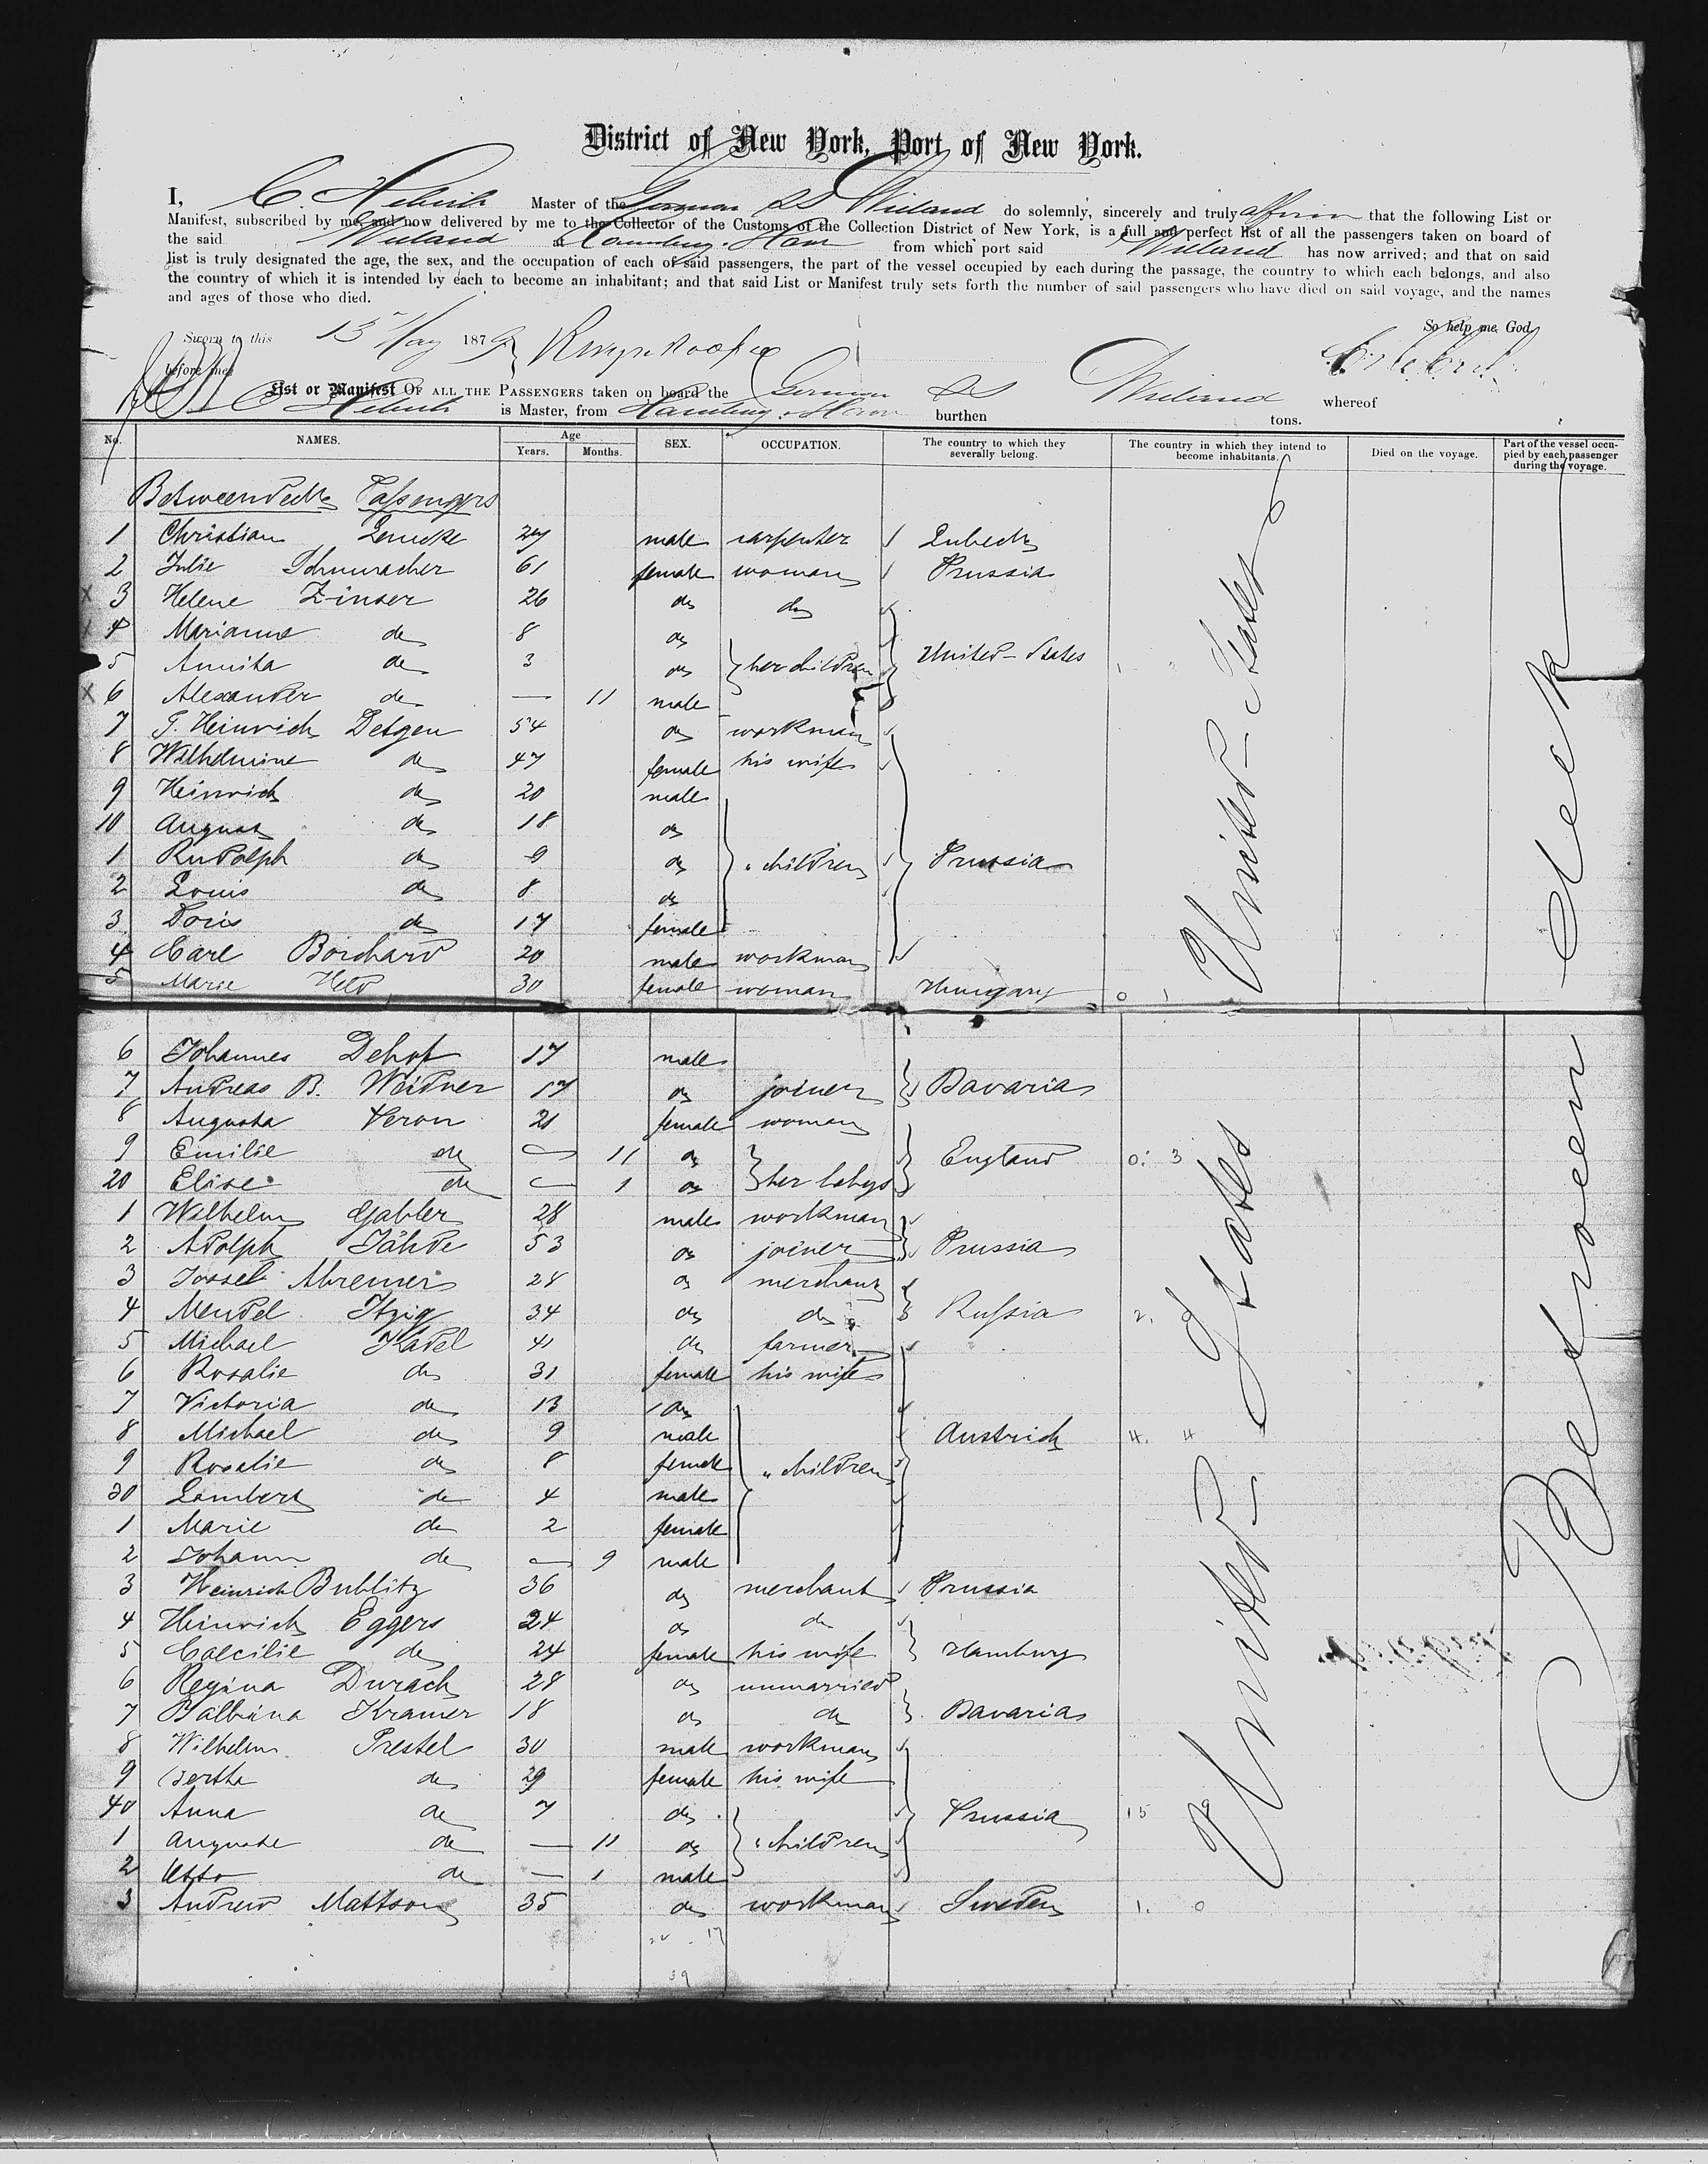 District of New York, Port of New York.
I, C. Hebich Master of the German SS Wieland do solemnly, sincerely and truly affirm that the following List or
Manifest, subscribed by me, and now delivered by me to the Collector of the Customs of the Collection District of New York, is a full and perfect list of all the passengers taken on board of
the said Wieland Hamburg & Havre from which port said Wieland has now arrived; and that on said
list is truly designated the age, the sex, and the occupation of each of said passengers, the part of the vessel occupied by each during the passage, the country to which each belongs, and also
the country of which it is intended by each to become an inhabitant; and that said List or Manifest truly sets forth the number of said passengers who have died on said voyage, and the names
and ages of those who died.
So help me God,
Sworn to this 15 May 1879
before me
List or Manifest OF ALL THE PASSENGERS taken on board the German SS Wieland whereof
C. Hebich is Master, from Hamburg & Havre burthen tons.
No. NAMES. Age Years. Months. SEX. OCCUPATION. The country to which they severally belong. The country in which they intend to become inhabitants. Died on the voyage. Part of the vessel occupied by each passenger during the voyage.
Betweendecks Passengers
1 Christian Lemcke 27 male carpenter Lubeck
2 Julie Schumacher 61 female woman Prussia
X 3 Helene Zinser 26 do do
X 4 Marianne do 8 do
5 Annita do 3 do her children United-States
X 6 Alexander do — 11 male
7 J. Heinrich Detgen 54 do workman
8 Wilhelmine do 47 female his wife
9 Heinrich do 20 male
10 August do 18 do
1 Rudolph do 9 do " children Prussia
2 Louis do 8 do
3 Doris do 17 female
4 Carl Borchard 20 male workman
5 Marie Held 30 female woman Hungary 0 1
6 Johannes Dehof 17 male
7 Andreas B. Weidner 17 do joiner Bavaria
8 Augusta Veron 21 female woman
9 Emilie do — 11 do England 0. 3
20 Elise do — 1 do her babys
1 Wilhelm Gabler 28 male workman
2 Adolph Jähde 53 do joiner Prussia
3 Jossel Abremer 28 do merchant
4 Mendel Itzig 34 do do Russia 2. 0
5 Michael Kadel 41 do farmer
6 Rosalie do 31 female his wife
7 Victoria do 13 do
8 Michael do 9 male Austrich 4. 4
9 Rosalie do 8 female " children
30 Lambert do 4 male
1 Marie do 2 female
2 Johann do — 9 male
3 Heinrich Bublitz 36 do merchant Prussia
4 Heinrich Eggers 24 do do
5 Caecilie do 24 female his wife Hamburg
6 Regina Durach 28 do unmarried
7 Balbina Kramer 18 do do Bavaria
8 Wilhelm Prestel 30 male workman
9 Bertha do 29 female his wife
40 Anna do 7 do Prussia 15 9
1 Auguste do — 11 do " children
2 Otto do — 1 male
3 Andrew Mattson 35 do workman Sweden 1. 0
22 - 17
39
United-States
United States
Between deck